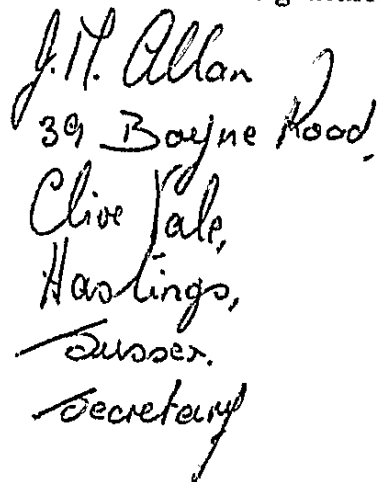 J.M. Allan
39 Boyne Road,
Clive Vale,
Hastings,
Sussex.
Secretary